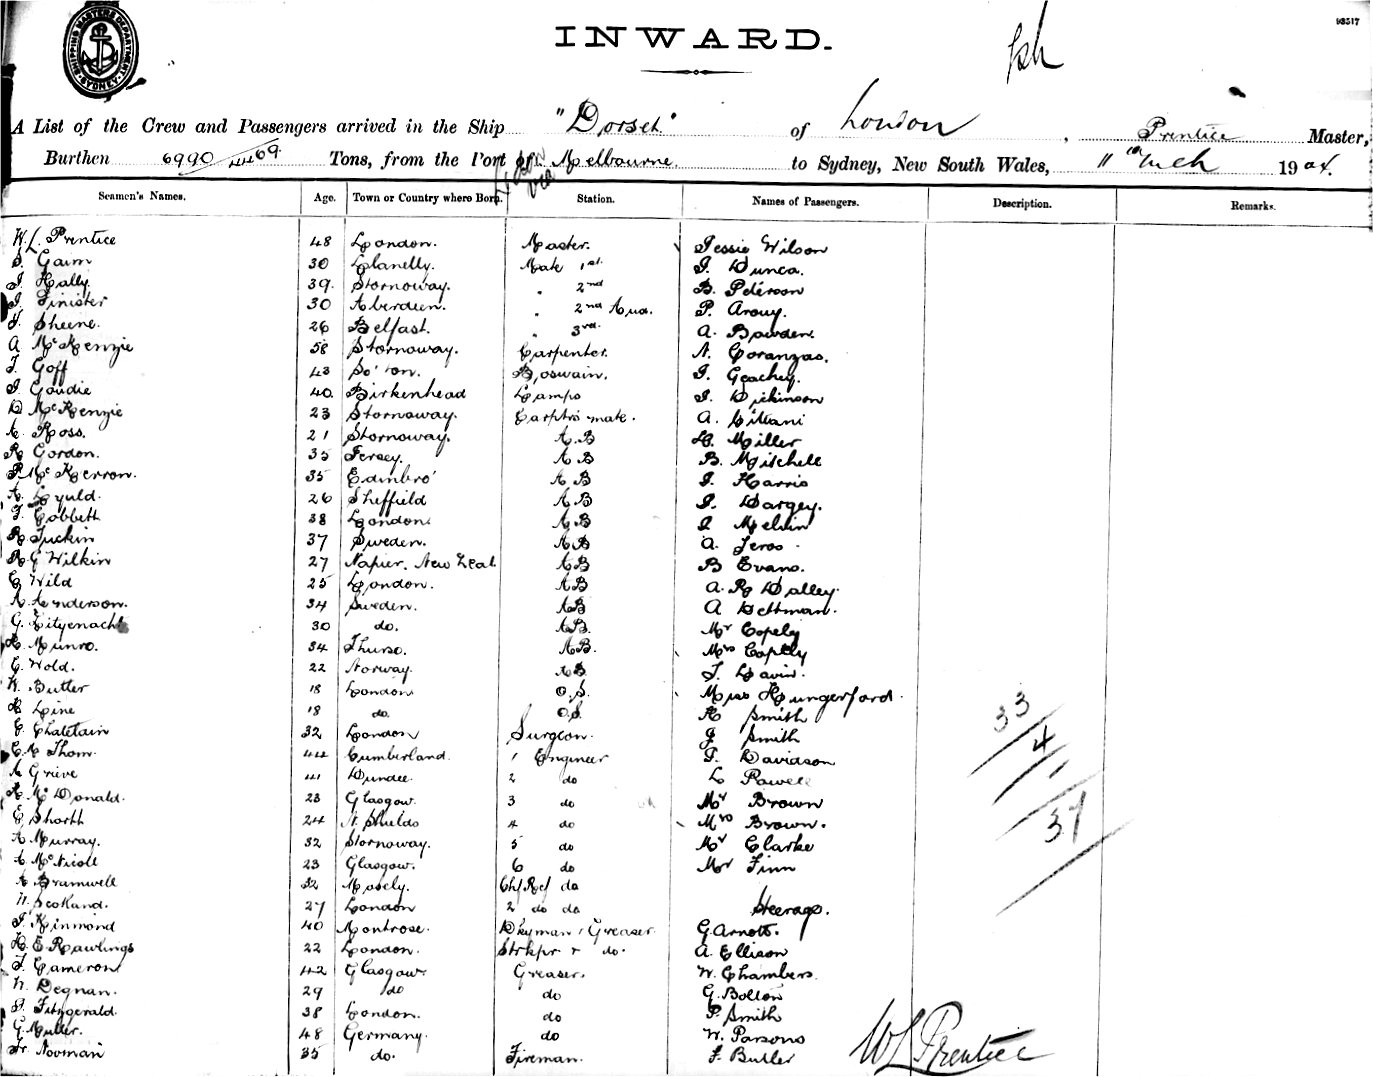 SHIPPING MASTERS DEPARTMENT SYDNEY
93517
INWARD.
A List of the Crew and Passengers arrived in the Ship "Dorset" of London, Prentice Master,
Burthen 6990 Tons, from the Port of Melbourne to Sydney, New South Wales, 11th Mch 1904.
via
Seamen's Names. Age. Town or Country where Born. Station. Names of Passengers. Description. Remarks.
W. L. Prentice 48 London. Master. Jessie Wilson
S. Gaim 30 Llanelly. Mate 1st J. Dunca.
J. Hally 39. Stornoway. " 2nd B. Peterson
J. Finister 30 Aberdeen. " 2nd Aux. P. Arouy.
J. Sheene. 26 Belfast. " 3rd. A. Bowden.
A McKenzie 58 Stornoway. Carpenter. N. Coranzas.
J. Goff 43 So'ton. Boswain. J. Geachey.
J. Goudie 40. Birkenhead Lamps J. Dickinson
D McKenzie 23 Stornoway. Carptrs mate. A.
A. Ross. 21 Stornoway. A.B Miller
R Gordon. 35 Jersey. A B B. Mitchell
P. McKerron. 35 Edinbro' A B J. Harris
A. Lyuld. 26 Sheffield A B J. Dargey.
J. Cobbett 38 London. A B J Melvin
R Tuckin 37 Sweden. A B A. Jeros.
R. G Wilkin 27 Napier, New Zeal. A B B Evans.
C Wild 25 London. A B A. R Dalley.
A. Anderson. 34 Sweden. A B A Dettman.
G. Zityenacht 30 do. A B. Mr Copely
H. Munro. 34 Thurso. A B. Mrs Copely
C. Wold. 22 Norway. A B J. Davis.
W. Butler 18 London O. S. Miss Hungerford.
H Line 18 do. O. S. H Smith
E. Chatetain 32 London Surgeon. J Smith
C. M Thom. 44 Cumberland. 1 Engineer T. Davidson
A Grieve 41 Dundee. 2 do L Powell
R. McDonald. 23 Glasgow. 3 do Mr Brown
E Shorth 24 N. Shields 4 do Mrs Brown.
A. Murray. 32 Stornoway. 5 do Mr Clarke
A. McNicoll 23 Glasgow. 6 do Mr Finn
A Bramwell 32 Mosely. Chf Ref do
W. Scotland. 27 London 2 do do Steerage.
J. Kinmond 40 Montrose. Dkyman & Greaser G. Arnott.
H. E. Rawlings 22 London. Strkpr & do. A. Ellison
J. Cameron 42 Glasgow. Greaser. W. Chambers.
W. Degnan. 29 do do G. Bolton
P. Fitzgerald. 38 London. do P. Smith
G. Muller. 48 Germany. do W. Parsons
Fr. Nooman 35 do. Fireman. J. Butler
33
4
37
W L Prentice